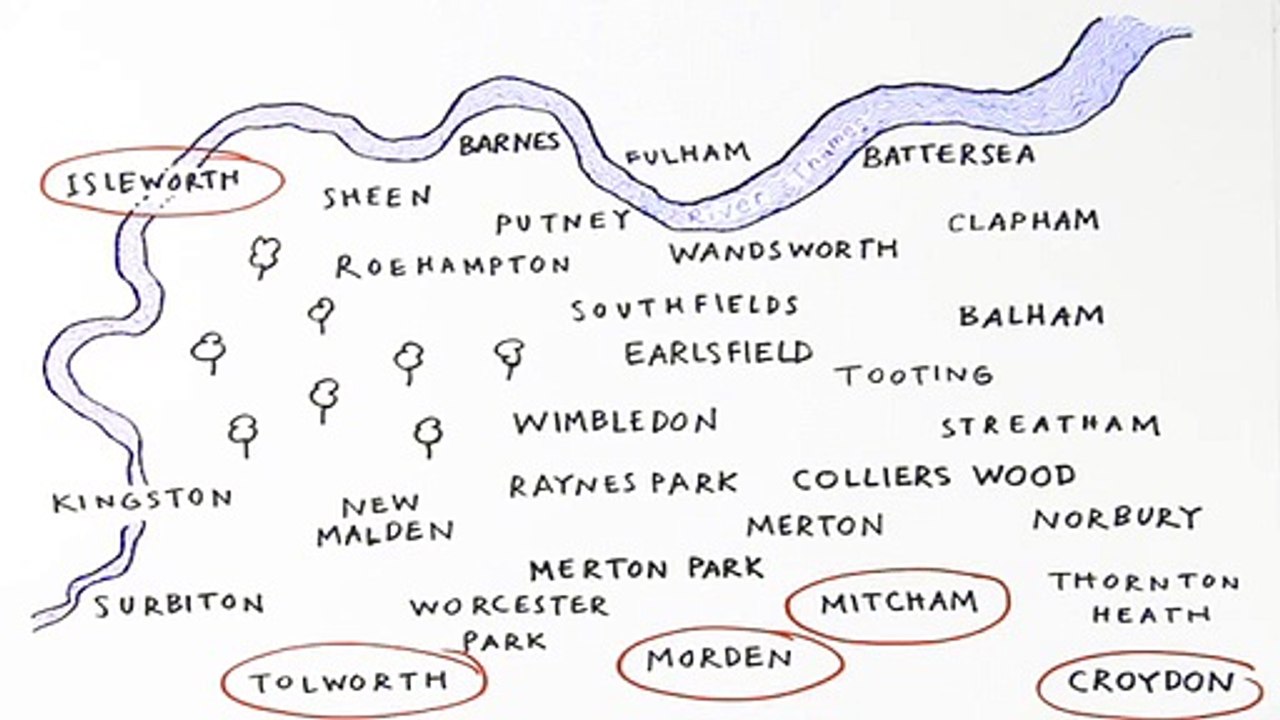 BARNES
FULHAM
BATTERSEA
River Thames
ISLEWORTH
SHEEN
PUTNEY
CLAPHAM
ROEHAMPTON
WANDSWORTH
SOUTHFIELDS
BALHAM
EARLSFIELD
TOOTING
WIMBLEDON
STREATHAM
RAYNES PARK
COLLIERS WOOD
KINGSTON
NEW
MALDEN
MERTON
NORBURY
MERTON PARK
SURBITON
WORCESTER
PARK
MITCHAM
THORNTON
HEATH
TOLWORTH
MORDEN
CROYDON